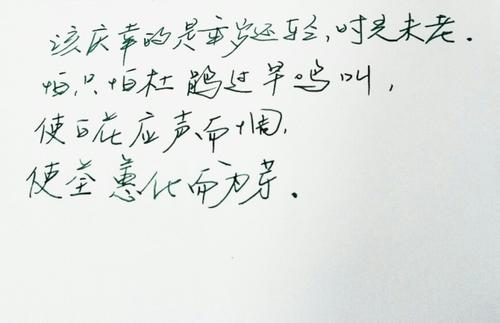 该庆幸的是年岁还轻,时光未老.
怕,只怕杜鹃过早鸣叫,
使百花应声而凋,
使荃蕙化而为芽.